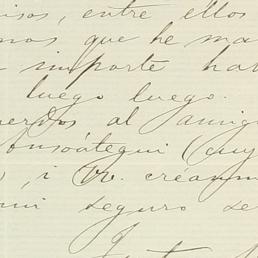 isos, entre ellos
mos que he ma
importe ha
luego luego.
uerdos al amig
Ansoátegui (cuy
, i V. créanm
mi seguro se